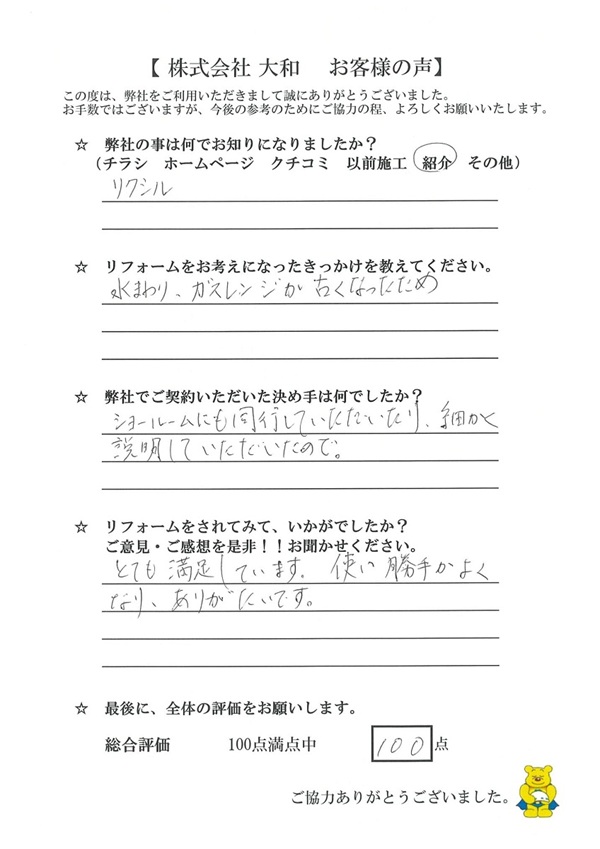 【 株式会社 大和　お客様の声】
この度は、弊社をご利用いただきまして誠にありがとうございました。
お手数ではございますが、今後の参考のためにご協力の程、よろしくお願いいたします。
☆　弊社の事は何でお知りになりましたか？
（チラシ　ホームページ　クチコミ　以前施工　紹介　その他）
リクシル
☆　リフォームをお考えになったきっかけを教えてください。
水まわり、ガスレンジが古くなったため
☆　弊社でご契約いただいた決め手は何でしたか？
ショールームにも同行していただいたり、細かく
説明していただいたので。
☆　リフォームをされてみて、いかがでしたか？
ご意見・ご感想を是非！！お聞かせください。
とても満足しています。使い勝手がよく
なり、ありがたいです。
☆　最後に、全体の評価をお願いします。
総合評価　100点満点中　100点
ご協力ありがとうございました。